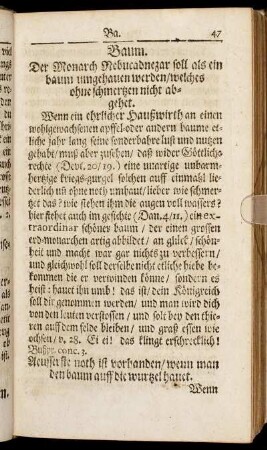 Ba. 47
Baum.
Der Monarch Nebucadnezar soll als ein
baum umgehauen werden/welches
ohne schmertzen nicht ab-
gehet.
Wenn ein ehrlicher Haußwirth an einen
wohlgewachsenen apffel-oder andern baume et-
liche jahr lang seine sonderbahre lust und nutzen
gehabt/muß aber zusehen/daß wider Göttliches
rechte (Devt. 20/19.) eine unartige unbarm-
hertzige kriegs-gurgel solchen auff einmahl lie-
derlich uñ ohne noth umhaut/lieber wie schmer-
tzet das? wie stehen ihm die augen voll wassers?
hier stehet auch im gesichte (Dan. 4/11.) ein ex-
traordinar schöner baum / der einen grossen
erd-monarchen artig abbildet / an glück / schön-
heit und macht war gar nichts zu verbessern/
und gleichwohl soll derselbe nicht etliche hiebe be-
kommen die er verwinden könne / sondern es
heist: hauet ihn umb! das ist/ dein Königreich
soll dir genommen werden/ und man wird dich
von den leuten verstossen / und solt bey den thie-
ren auff dem felde bleiben/ und graß essen wie
ochsen/ v. 28. Ei ei! das klingt erschrecklich!
Bußpr. conc. 3.
Aeuserste noth ist vorhanden/ wenn man
den baum auff die wurtzel hauet.
Wenn